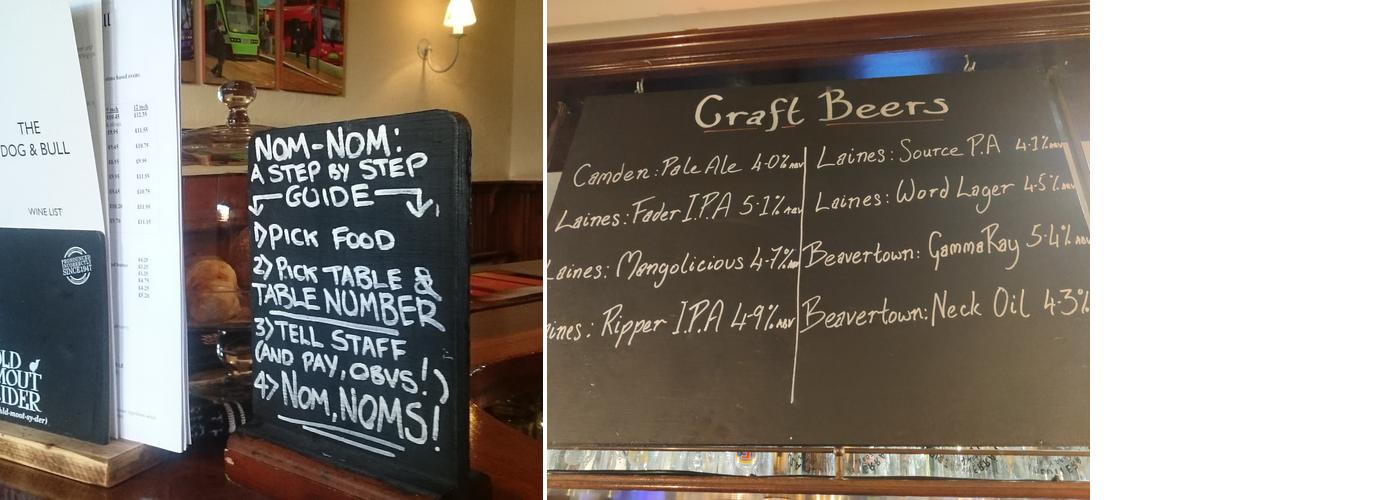 THE
DOG & BULL
WINE LIST
PRONOUNCED
INCORRECTLY
SINCE 1947
OLD
MOUT
CIDER
NOM-NOM:
A STEP BY STEP
GUIDE
1) PICK FOOD
2) PICK TABLE &
TABLE NUMBER
3) TELL STAFF
(AND PAY, OBVS!)
4) NOM, NOMS!
Craft Beers
Camden: Pale Ale 4.0% ABV
Laines: Fader I.P.A 5.1% ABV
Laines: Mangolicious 4.7% ABV
Laines: Ripper I.P.A 4.9% ABV
Laines: Source P.A 4.1% ABV
Laines: Word Lager 4.5% ABV
Beavertown: Gamma Ray 5.4% ABV
Beavertown: Neck Oil 4.3%